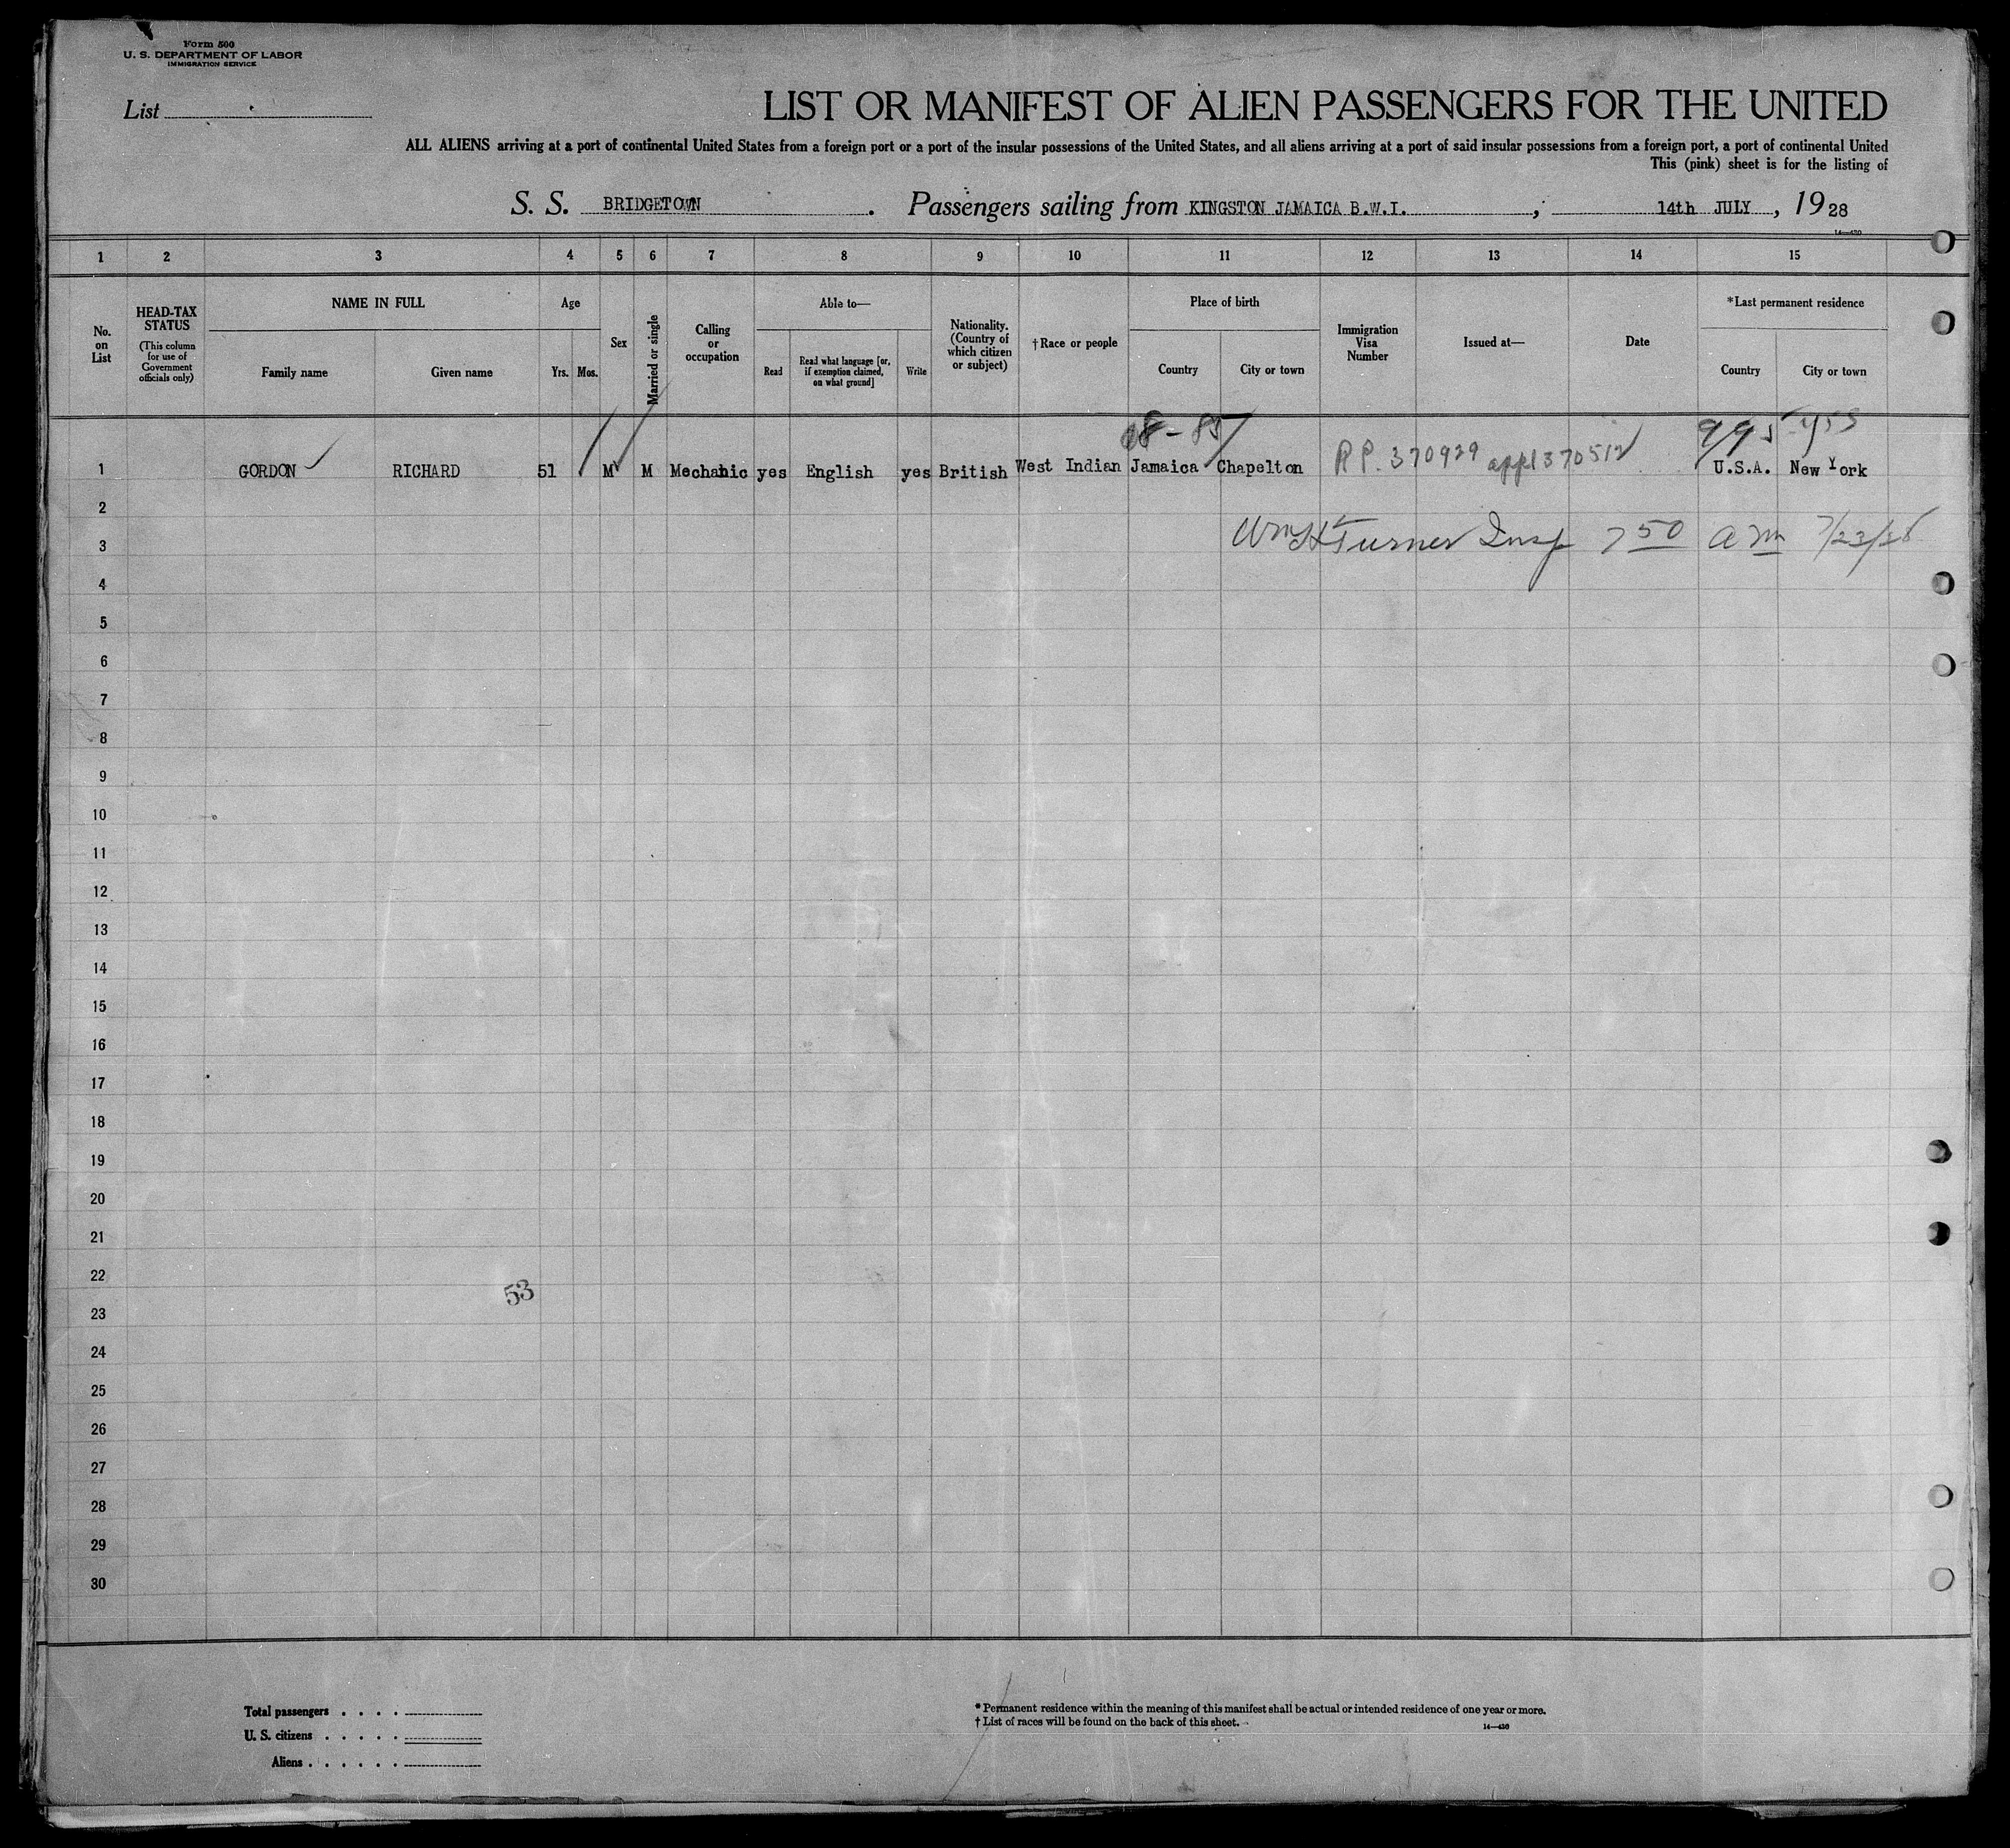 Form 500
U. S. DEPARTMENT OF LABOR
IMMIGRATION SERVICE
List
LIST OR MANIFEST OF ALIEN PASSENGERS FOR THE UNITED
ALL ALIENS arriving at a port of continental United States from a foreign port or a port of the insular possessions of the United States, and all aliens arriving at a port of said insular possessions from a foreign port, a port of continental United
This (pink) sheet is for the listing of
S. S. BRIDGETOWN. Passengers sailing from KINGSTON JAMAICA B.W.I., 14th JULY, 1928
14—430
1 2 3 4 5 6 7 8 9 10 11 12 13 14 15
No. on List
HEAD-TAX STATUS
(This column for use of Government officials only)
NAME IN FULL
Family name Given name
Age
Yrs. Mos.
Sex
Married or single
Calling or occupation
Able to—
Read
Read what language [or, if exemption claimed, on what ground]
Write
Nationality. (Country of which citizen or subject)
†Race or people
Place of birth
Country City or town
Immigration Visa Number
Issued at—
Date
*Last permanent residence
Country City or town
1 GORDON RICHARD 51 M M Mechanic yes English yes British West Indian Jamaica Chapelton RP. 370929 appl 370512 U.S.A. New York
2
Wm H Turner Insp 7 50 am 7/23/28
3
4
5
6
7
8
9
10
11
12
13
14
15
16
17
18
19
20
21
22
53
23
24
25
26
27
28
29
30
Total passengers . . . .
U. S. citizens . . . . .
Aliens . . . . . .
* Permanent residence within the meaning of this manifest shall be actual or intended residence of one year or more.
† List of races will be found on the back of this sheet.
14—430